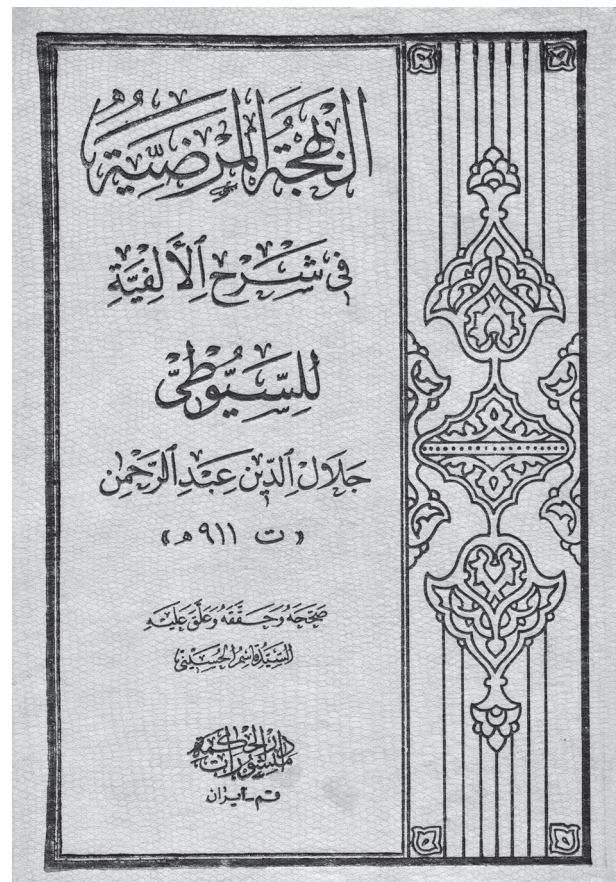 البَهجَةُ المَرضِيَّةُ
فِى شَرحِ الأَلفِيَّةِ
لِلسِّيُوطِىِّ
جَلَالُ الدِّينِ عَبدِ الرَّحمنِ
« ت ٩١١ هـ »
صَحَّحَهُ وَحَقَّقَهُ وَعَلَّقَ عَلَيهِ
السَّيِّد قاسِمُ الحُسَينِى
منشورات دار الحكمة
قم - ايران